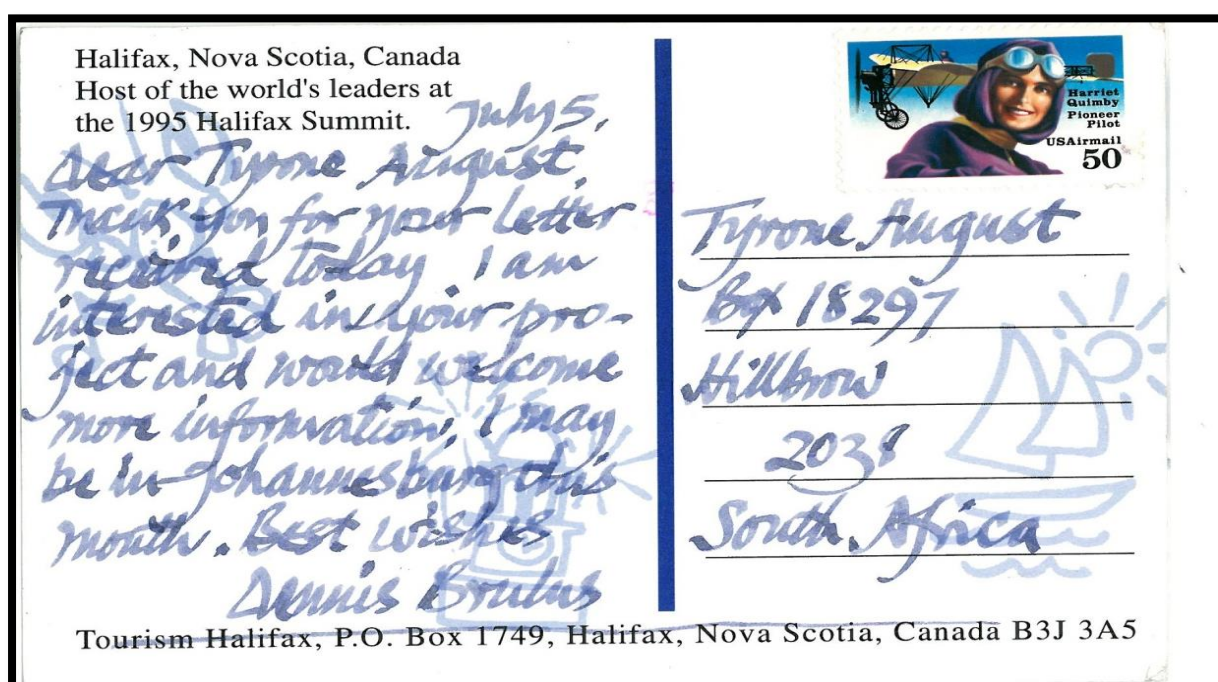 Halifax, Nova Scotia, Canada
Host of the world's leaders at
the 1995 Halifax Summit.
July 5,
Dear Tyrone August,
Thank you for your letter
received today. I am
interested in your pro-
ject and would welcome
more information. I may
be in Johannesburg this
month. Best wishes
Dennis Brutus
Harriet
Quimby
Pioneer
Pilot
USAirmail
50
Tyrone August
Box 18297
Hillbrow
2038
South Africa
Tourism Halifax, P.O. Box 1749, Halifax, Nova Scotia, Canada B3J 3A5